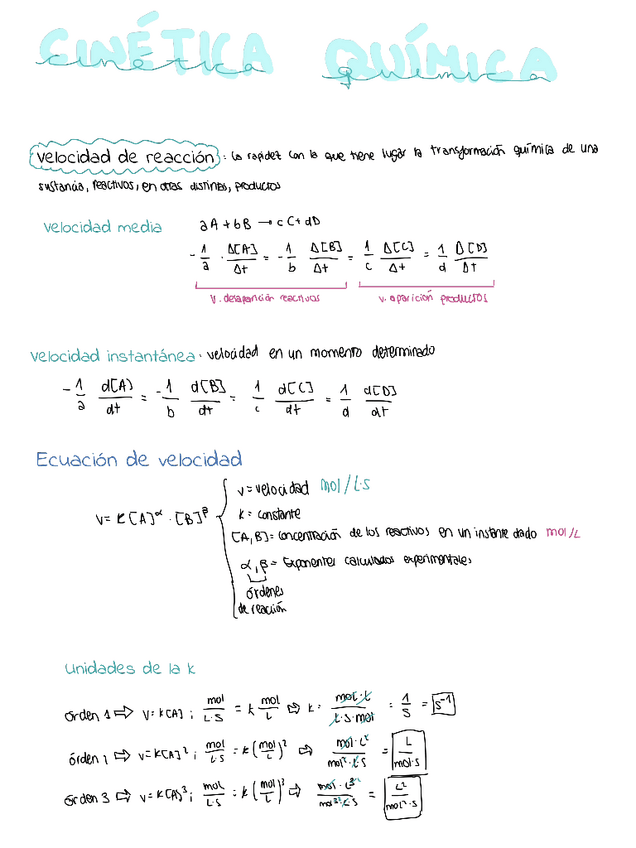 CINÉTICA QUÍMICA
cinética química
velocidad de reacción: la rapidez con la que tiene lugar la transformación química de una
sustancia, reactivos, en otras distintas, productos
velocidad media aA + bB → cC + dD
- 1/a · Δ[A]/Δt = - 1/b Δ[B]/Δt = 1/c Δ[C]/Δt = 1/d Δ[D]/Δt
v. desaparición reactivos v. aparición productos
velocidad instantánea: velocidad en un momento determinado
- 1/a d[A]/dt = - 1/b d[B]/dt = 1/c d[C]/dt = 1/d d[D]/dt
Ecuación de velocidad
v = k[A]^α · [B]^β
v = velocidad mol/L·s
k = constante
[A,B] = concentración de los reactivos en un instante dado mol/L
α, β = Exponentes calculados experimentales
órdenes
de reacción
unidades de la k
órden 1 ⇒ v = k[A] ; mol/L·s = k mol/L ⇒ k = mol·L/L·s·mol = 1/s = s⁻¹
órden 2 ⇒ v = k[A]² ; mol/L·s = k (mol/L)² ⇒ mol·L²/mol²·L·s = L/mol·s
órden 3 ⇒ v = k[A]³ ; mol/L·s = k (mol/L)³ ⇒ mol·L³/mol³·L·s = L²/mol²·s